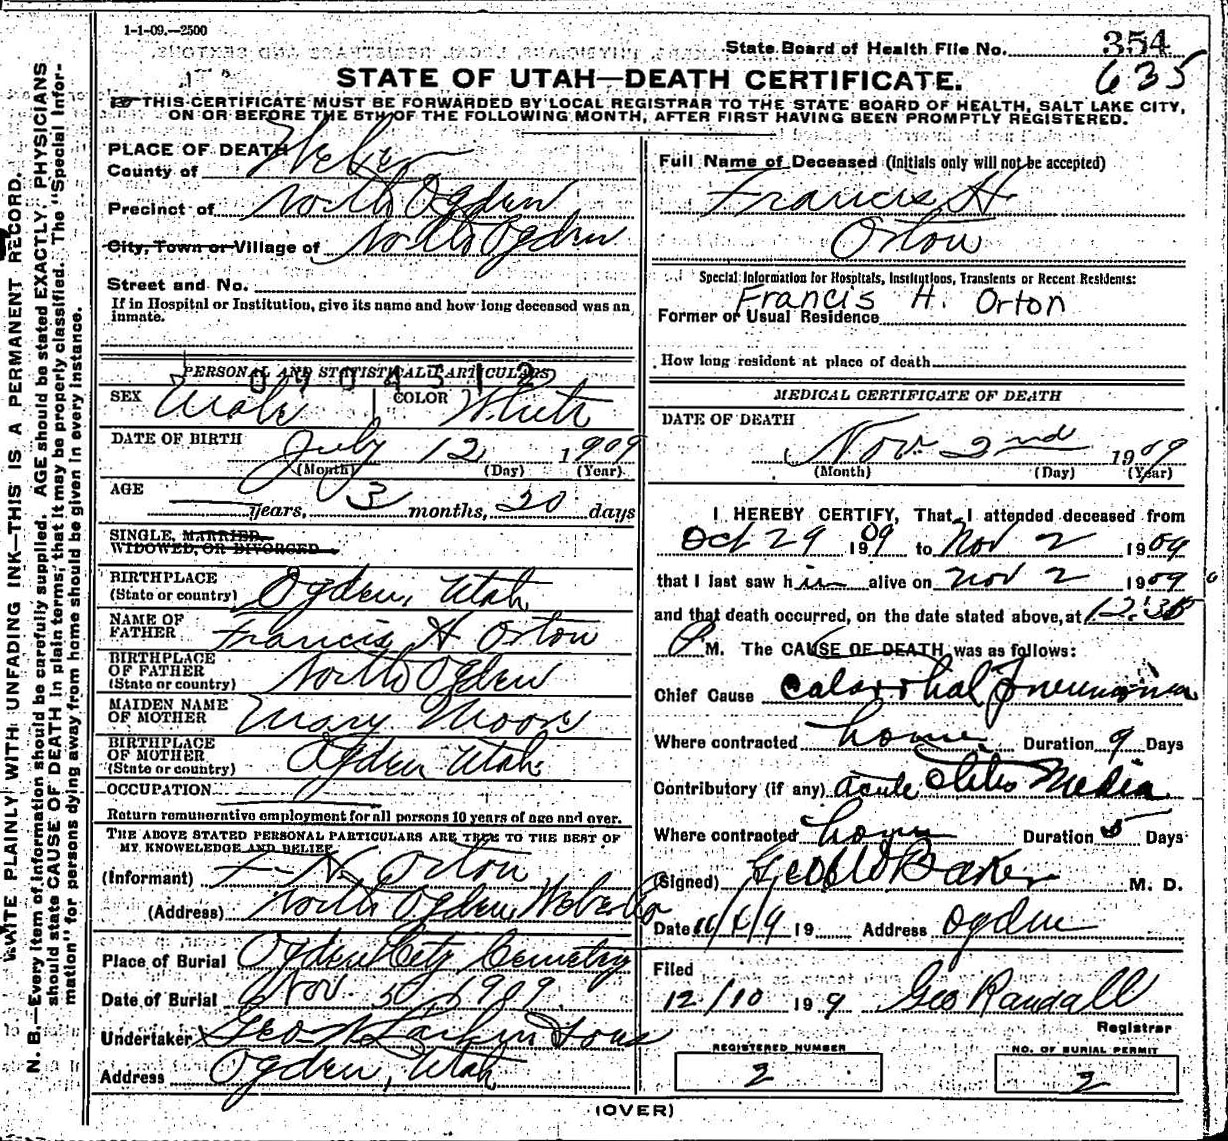 1-1-09.—2500
State Board of Health File No. 354
635
STATE OF UTAH—DEATH CERTIFICATE.
THIS CERTIFICATE MUST BE FORWARDED BY LOCAL REGISTRAR TO THE STATE BOARD OF HEALTH, SALT LAKE CITY,
ON OR BEFORE THE 5TH OF THE FOLLOWING MONTH, AFTER FIRST HAVING BEEN PROMPTLY REGISTERED.
WRITE PLAINLY WITH UNFADING INK—THIS IS A PERMANENT RECORD.
N. B.—Every item of information should be carefully supplied. AGE should be stated EXACTLY. PHYSICIANS
should state CAUSE OF DEATH in plain terms, that it may be properly classified. The "Special Infor-
mation" for persons dying away from home should be given in every instance.
PLACE OF DEATH
County of Weber
Precinct of North Ogden
City, Town or Village of North Ogden
Street and No.
If in Hospital or Institution, give its name and how long deceased was an
inmate.
PERSONAL AND STATISTICAL PARTICULARS
0904312
SEX Male COLOR White
DATE OF BIRTH July 12 1909
(Month) (Day) (Year)
AGE years, 3 months, 20 days
SINGLE, MARRIED,
WIDOWED, OR DIVORCED
BIRTHPLACE
(State or country) Ogden, Utah
NAME OF
FATHER Francis H Orton
BIRTHPLACE
OF FATHER
(State or country) North Ogden
MAIDEN NAME
OF MOTHER Mary Moore
BIRTHPLACE
OF MOTHER
(State or country) Ogden Utah
OCCUPATION
Return remunerative employment for all persons 10 years of age and over.
THE ABOVE STATED PERSONAL PARTICULARS ARE TRUE TO THE BEST OF
MY KNOWLEDGE AND BELIEF
(Informant) F. H. Orton
(Address) North Ogden, Weber Co
Place of Burial Ogden City Cemetery
Date of Burial Nov. 1909
Undertaker Geo W Larkin & Sons
Address Ogden, Utah
Full Name of Deceased (Initials only will not be accepted)
Francis H
Orton
Special Information for Hospitals, Institutions, Transients or Recent Residents:
Francis H. Orton
Former or Usual Residence
How long resident at place of death
MEDICAL CERTIFICATE OF DEATH
DATE OF DEATH
Nov. 2nd 1909
(Month) (Day) (Year)
I HEREBY CERTIFY, That I attended deceased from
Oct 29 1909 to Nov 2 1909
that I last saw him alive on Nov 2 1909
and that death occurred, on the date stated above, at 12:35
P M. The CAUSE OF DEATH was as follows:
Chief Cause Catarrhal Pneumonia
Where contracted home Duration 9 Days
Contributory (if any) acute Otitis Media
Where contracted home Duration 5 Days
(Signed) Geo W Baker M. D.
Date 19 Address Ogden
Filed
12/10 1909 Geo Randall
Registrar
REGISTERED NUMBER
2
NO. OF BURIAL PERMIT
2
(OVER)